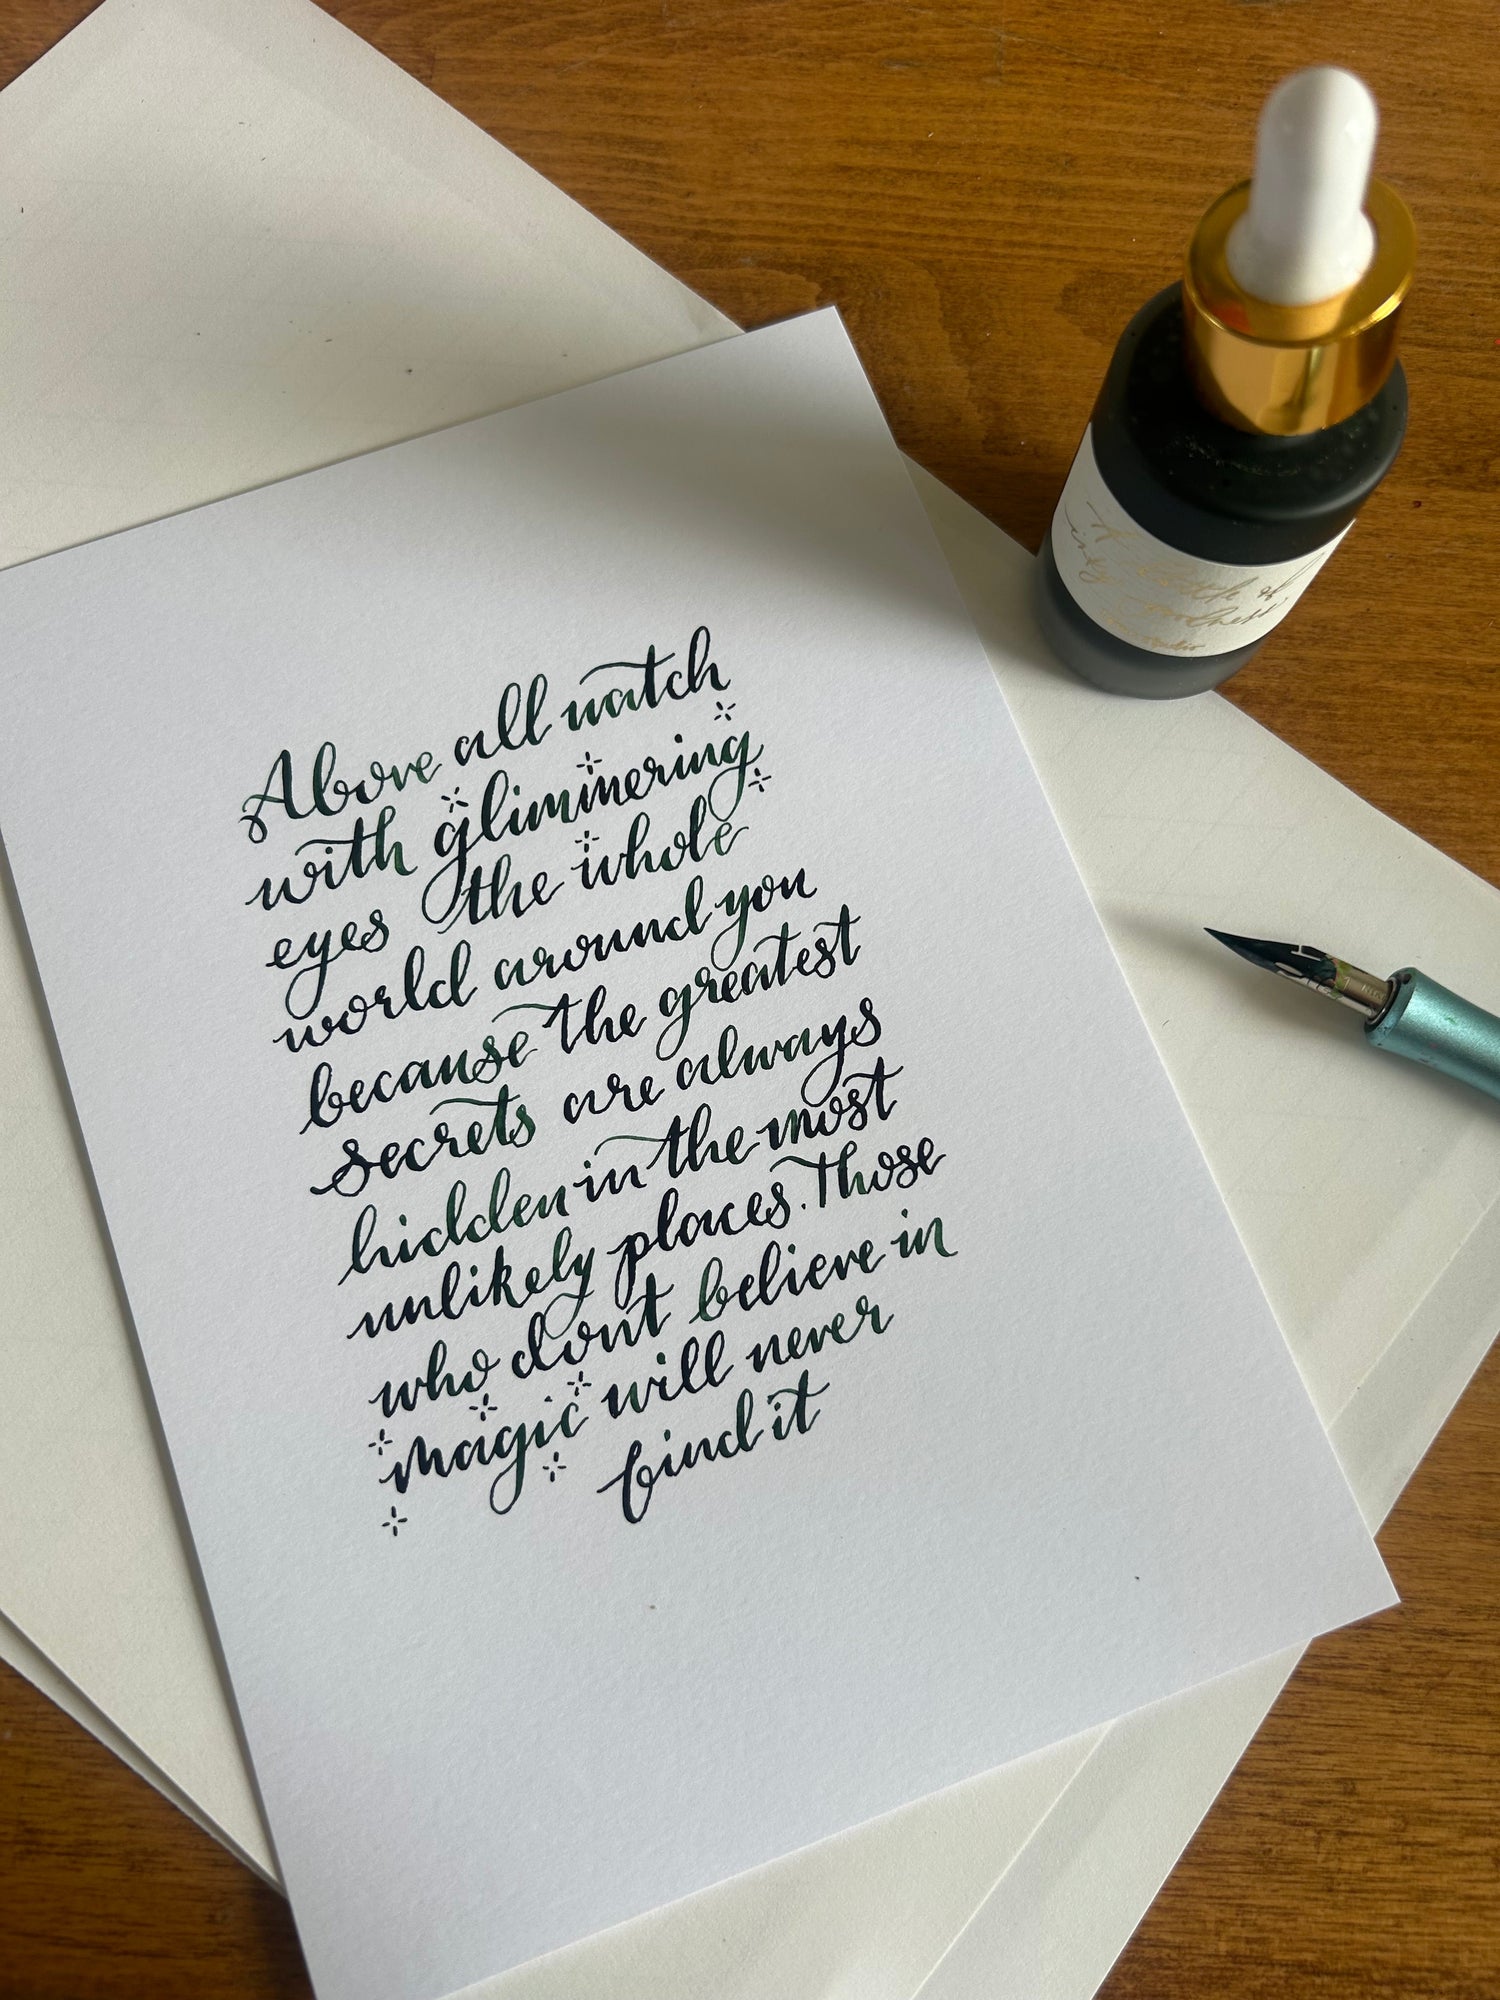 Above all watch
with glimmering
eyes the whole
world around you
because the greatest
secrets are always
hidden in the most
unlikely places. Those
who dont believe in
magic will never
find it
A bottle of
inky goodness